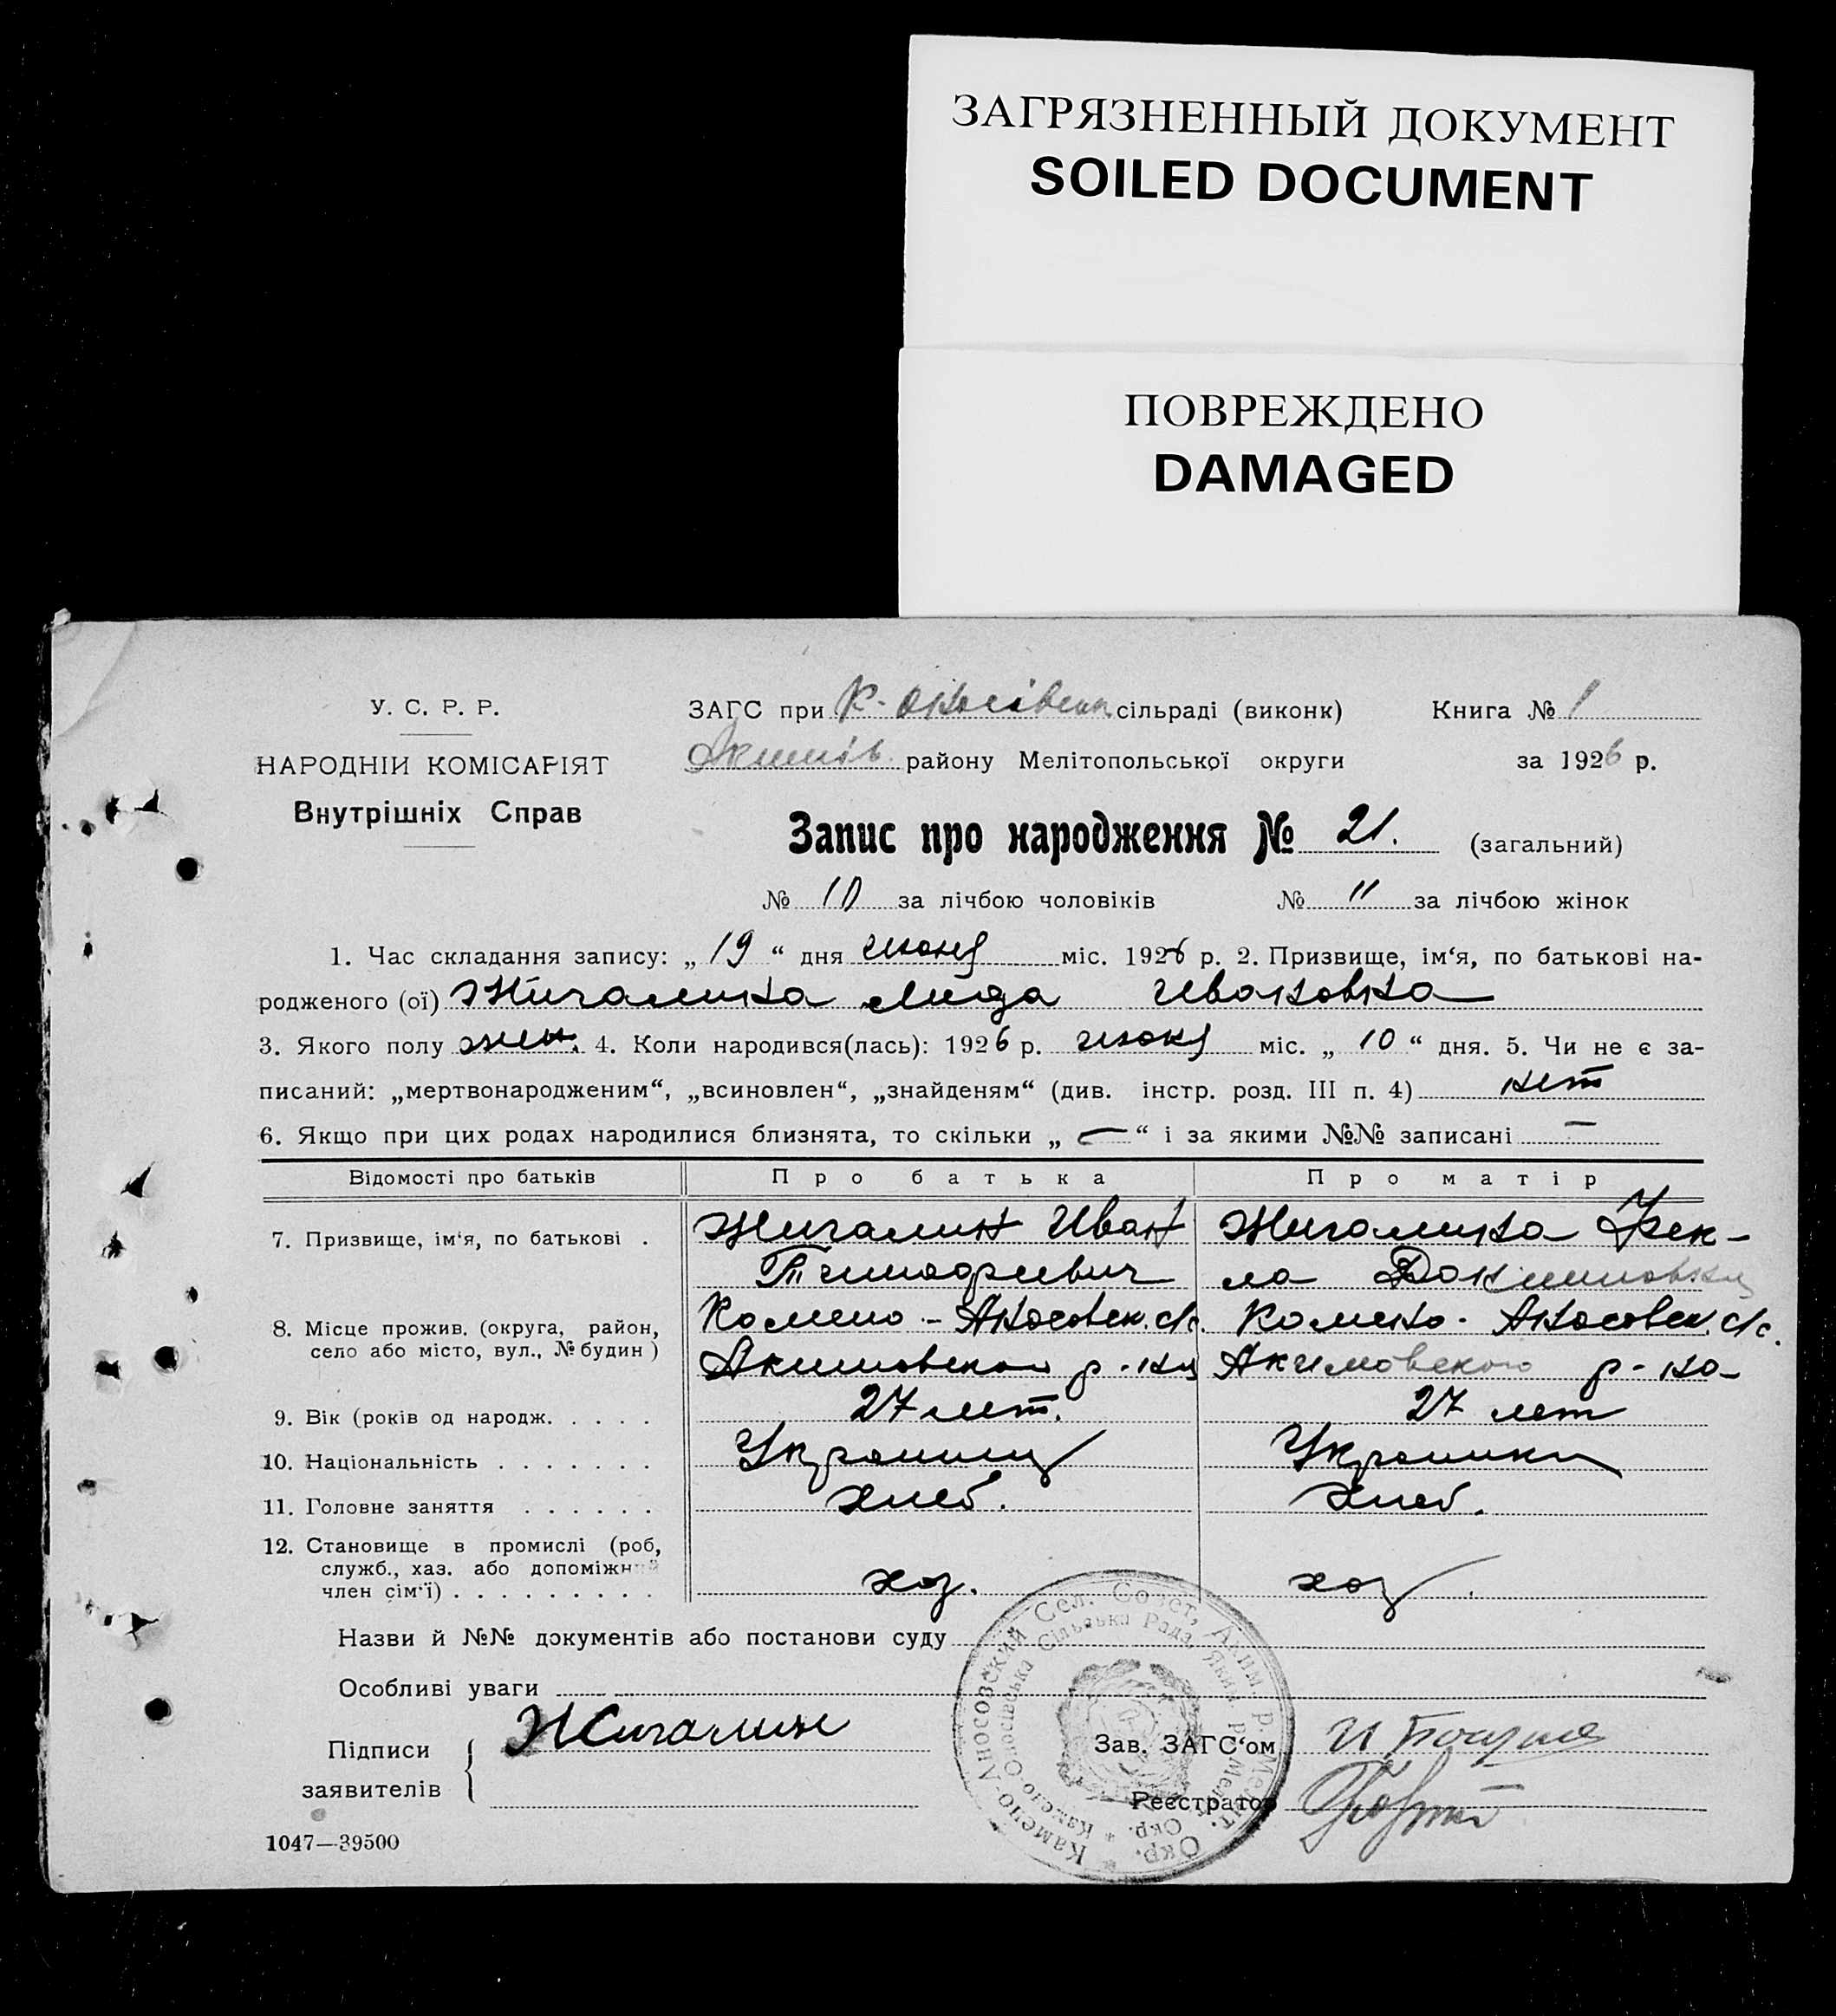 ЗАГРЯЗНЕННЫЙ ДОКУМЕНТ
SOILED DOCUMENT
ПОВРЕЖДЕНО
DAMAGED
У. С. Р. Р.
НАРОДНІЙ КОМІСАРІЯТ
Внутрішніх Справ
ЗАГС при К- сільраді (виконк) Книга № 1
Якимів району Мелітопольської округи за 1926 р.
Запис про народження № 21. (загальний)
№ 10 за лічбою чоловіків № 11 за лічбою жінок
1. Час складання запису: „ 19 “ дня июня міс. 1926 р. 2. Призвище, ім‘я, по батькові на-
родженого (ої) Жигалина Лида Ивановна
3. Якого полу жен. 4. Коли народився(лась): 1926 р. июня міс. „ 10 “ дня. 5. Чи не є за-
писаний: „мертвонародженим“, „всиновлен“, „знайденям“ (див. інстр. розд. III п. 4) нет
6. Якщо при цих родах народилися близнята, то скільки „ — “ і за якими №№ записані —
Відомості про батьків Про батька Про матір
7. Призвище, ім‘я, по батькові . Жигалин Иван Жигалина Фек-
Тимофеевич ла
8. Місце прожив. (округа, район, Камено - Аносовск. с/с. Камено - Аносовск. с/с.
село або місто, вул., № будин) Акимовского р-на Акимовского р-на
9. Вік (років од народж. . . . . 27 лет. 27 лет
10. Національність . . . . . . . Украинец Украинка
11. Головне заняття . . . . . . хлеб. хлеб.
12. Становище в промислі (роб,
служб., хаз. або допоміжний
член сім‘ї) . . . . . . . . . хоз. хоз.
Назви й №№ документів або постанови суду
Особливі уваги
Підписи
заявителів
Жигалин
Зав. ЗАГС‘ом
Реєстратор
Камено-Аносовский Сел. Совет, Аким. р. Мелит. Окр.
Сільська Рада, Яким. р. Мел. Окр.
1047—39500